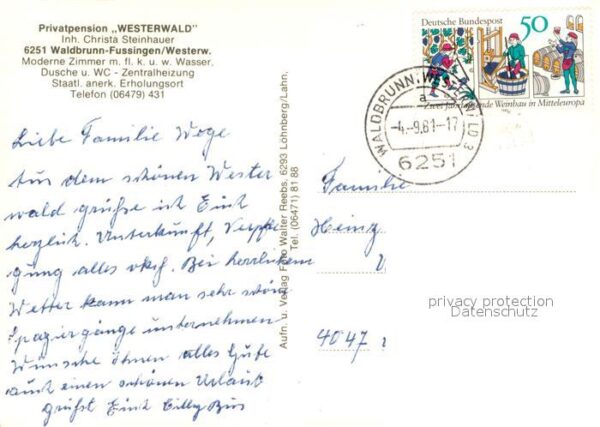 Privatpension „WESTERWALD"
Inh. Christa Steinhauer
6251 Waldbrunn-Fussingen/Westerw.
Moderne Zimmer m. fl. k. u. w. Wasser,
Dusche u. WC - Zentralheizung
Staatl. anerk. Erholungsort
Telefon (06479) 431
Liebe Familie Woge
Aus dem schönen Wester
wald grüße ich Euch
herzlich. Unterkunft, Verpfle
gung alles okey. Bei herrlichem
Wetter kann man sehr schön
Spaziergänge unternehmen
Wünsche Ihnen alles Gute
auch einen schönen Urlaub
grüßt Euch Cilly
Aufn. u. Verlag Foto Walter Reebs, 6293 Löhnberg/Lahn,
Tel. (06471) 81 88
Deutsche Bundespost
50
Zwei Jahrtausende Weinbau in Mitteleuropa
WALDBRUNN, WESTERWALD 3
a
-4.-9.81-17
6251
Familie
Heinz
4047
privacy protection
Datenschutz